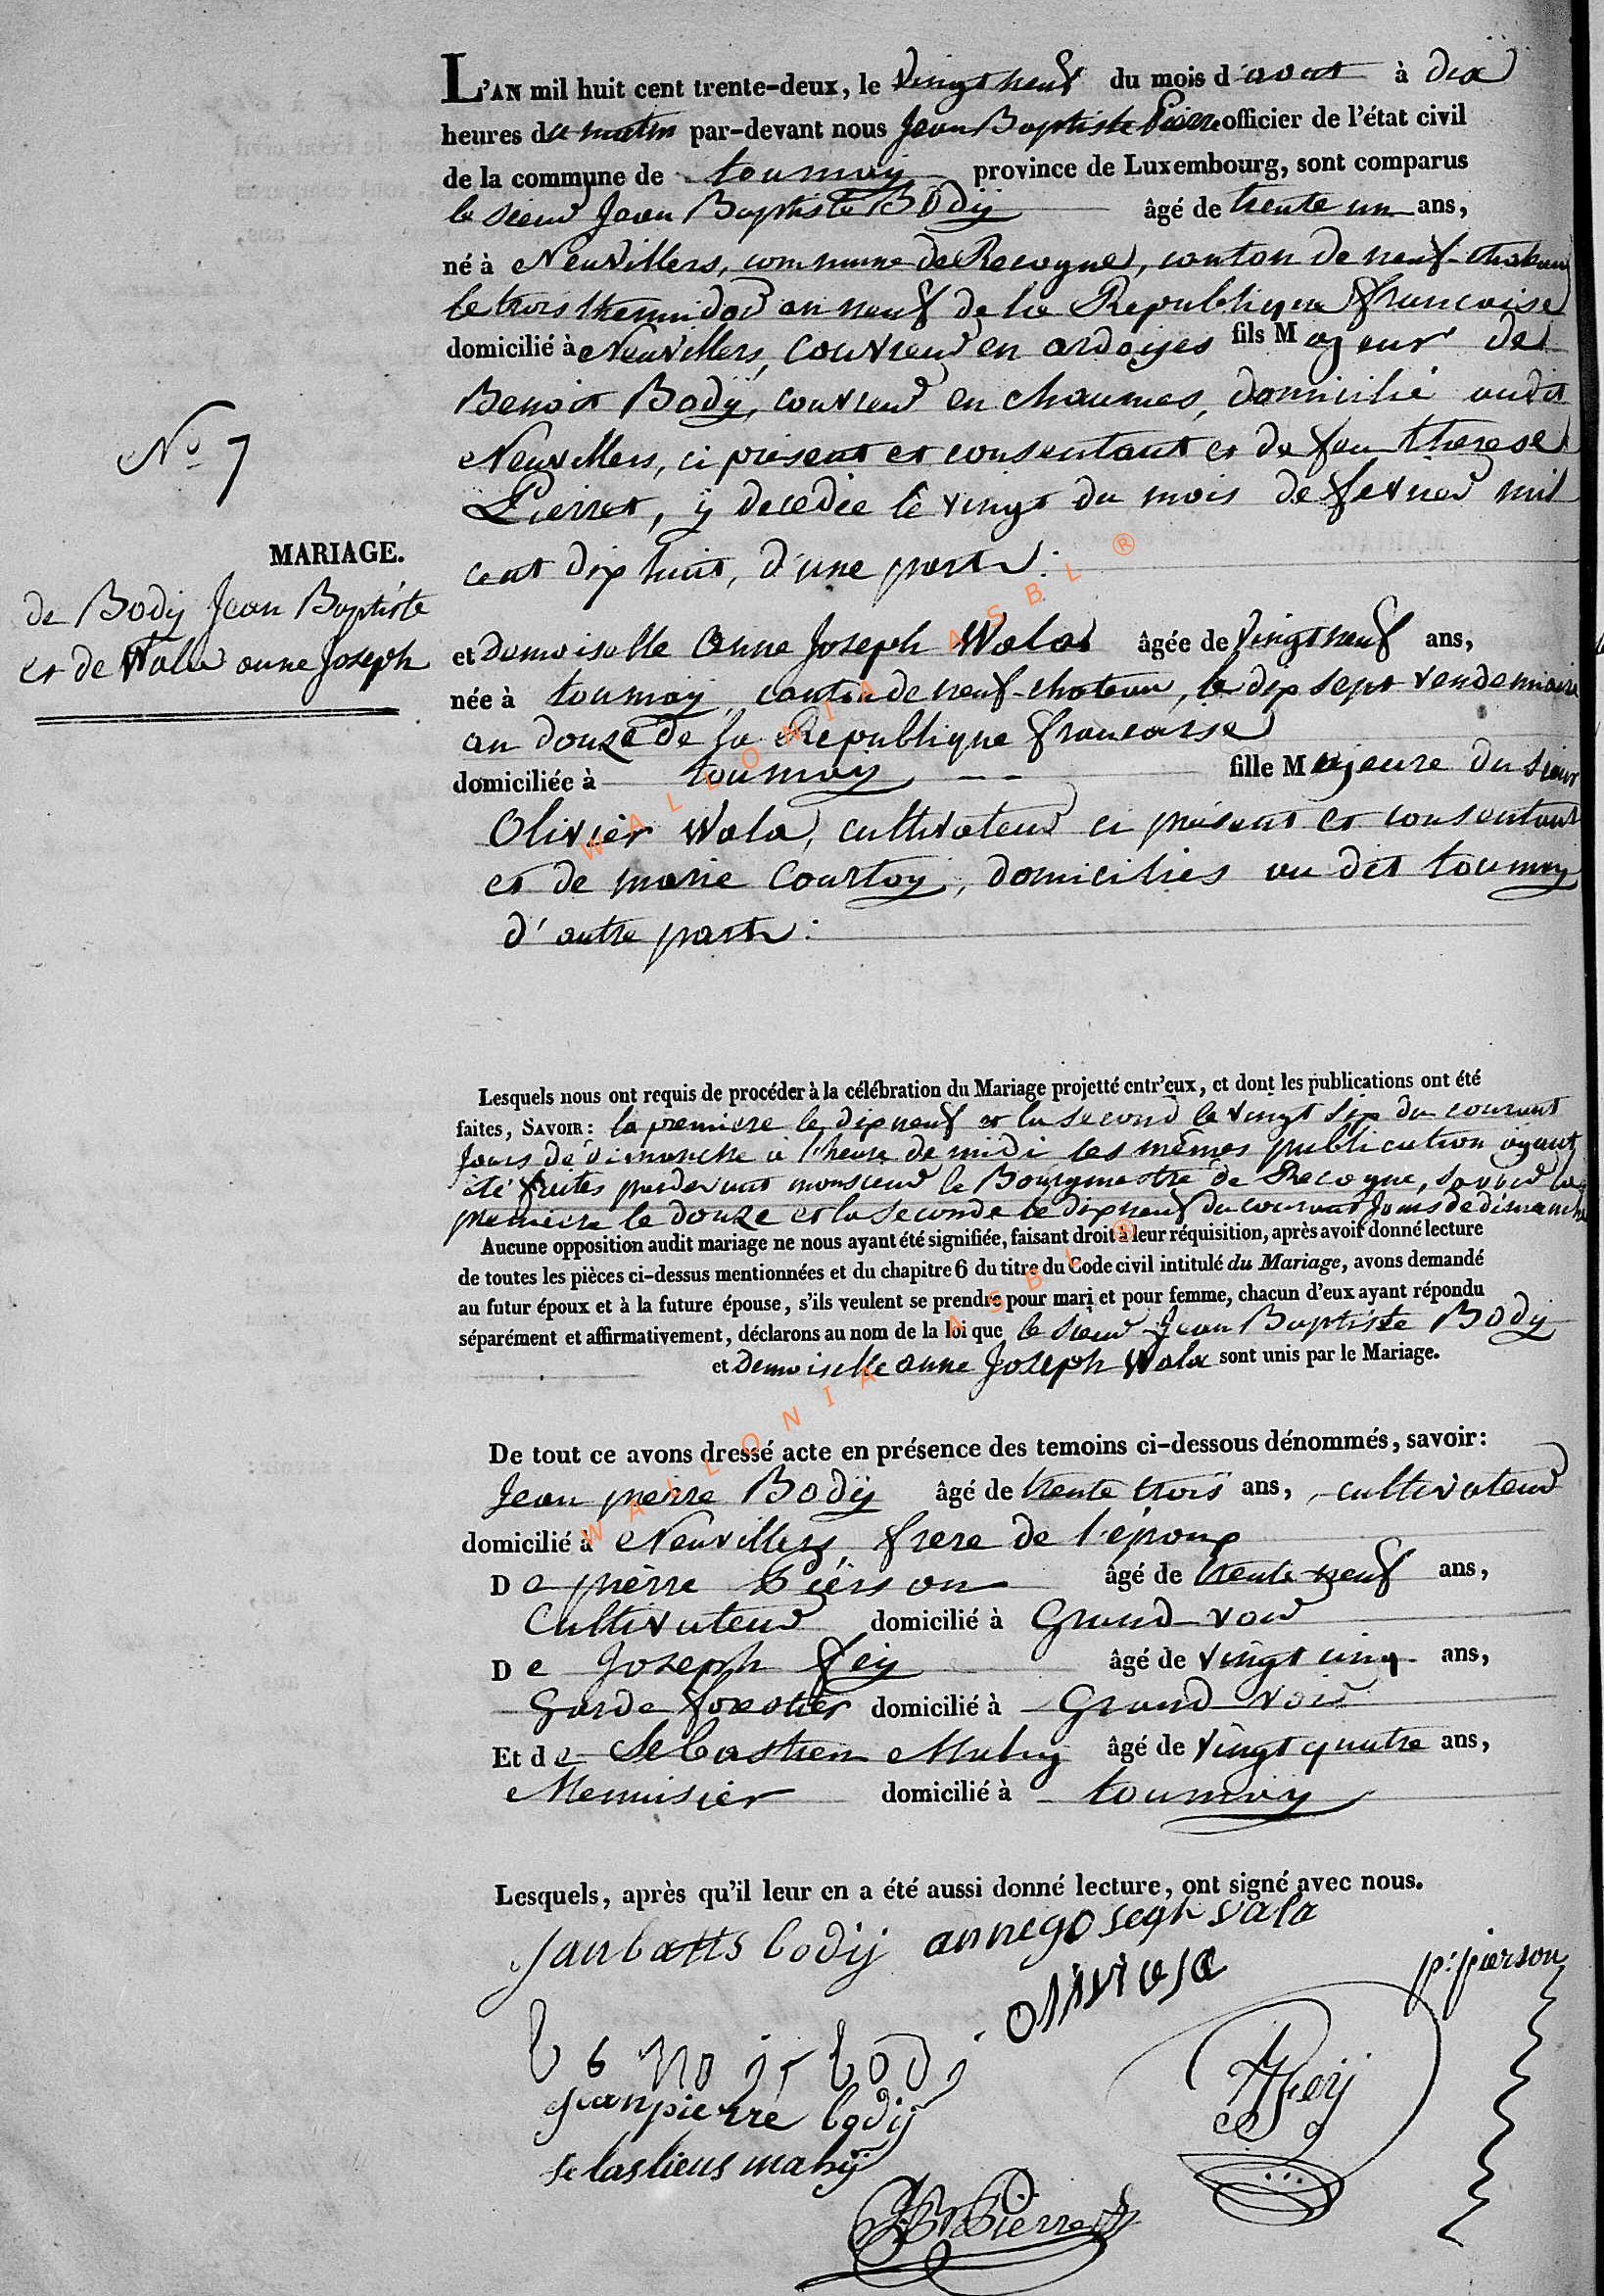 L'AN mil huit cent trente-deux, le vingt neuf du mois d'aout à dix
heures du matin par-devant nous Jean Baptiste Pierre officier de l'état civil
de la commune de tournay province de Luxembourg, sont comparus
le sieur Jean Baptiste Bodÿ âgé de trente un ans,
né à Neuvillers, commune de Recogne, canton de neuf-chateau
le trois thermidor an neuf de la Republique francaise
domicilié à Neuvillers, couvreur en ardoises fils Majeur de
Benoit Bodÿ, couvreur en chaumes, domicilié audit
Neuvillers, ci présent et consentant et de feu therese
Pierret, y decedée le vingt du mois de fevrier mil
cent dix huit, d'une part :
No 7
MARIAGE.
de Bodÿ Jean Baptiste
et de Wala anne Joseph
et Demoiselle Anne Joseph Wala âgée de vingt neuf ans,
née à tournay canton de neuf-chateau, le dix sept vendemiaire
an douze de la Republique francaise
domiciliée à tournay fille Majeure du sieur
Olivier Wala, cultivateur ci présent et consentant
et de marie Courtoy, domiciliés au dit tournay
d'autre part :
Lesquels nous ont requis de procéder à la célébration du Mariage projetté entr'eux, et dont les publications ont été
faites, SAVOIR : la premiere le dix neuf et la second le vingt six du courant
Jours de dimanche à l'heure de midi les mêmes publication ayant
été faites pardevant monsieur le Bourgmestre de Recogne, savoir la
premiere le douze et la seconde le dix neuf du courant Jours de dimanche
Aucune opposition audit mariage ne nous ayant été signifiée, faisant droit à leur réquisition, après avoir donné lecture
de toutes les pièces ci-dessus mentionnées et du chapitre 6 du titre du Code civil intitulé du Mariage, avons demandé
au futur époux et à la future épouse, s'ils veulent se prendre pour mari et pour femme, chacun d'eux ayant répondu
séparément et affirmativement, déclarons au nom de la loi que le sieur Jean Baptiste Bodÿ
et Demoiselle anne Joseph Wala sont unis par le Mariage.
De tout ce avons dressé acte en présence des temoins ci-dessous dénommés, savoir :
Jean pierre Bodÿ âgé de trente trois ans, cultivateur
domicilié à Neuvillers, frere de l'époux
De pierre Pierson âgé de trente neuf ans,
Cultivateur domicilié à Grand voir
De Joseph feÿ âgé de vingt cinq ans,
Garde forestier domicilié à Grand voir
Et de Sebastien Mahy âgé de vingt quatre ans,
Menuisier domicilié à tournay
Lesquels, après qu'il leur en a été aussi donné lecture, ont signé avec nous.
Janbatts bodÿ annegosegh vala
p. pierson
benoit bodi
feÿ
Jeanpierre bodÿ
sebastiens mahÿ
JB Pierre
WALLONIA ASBL ®
WALLONIA ASBL ®